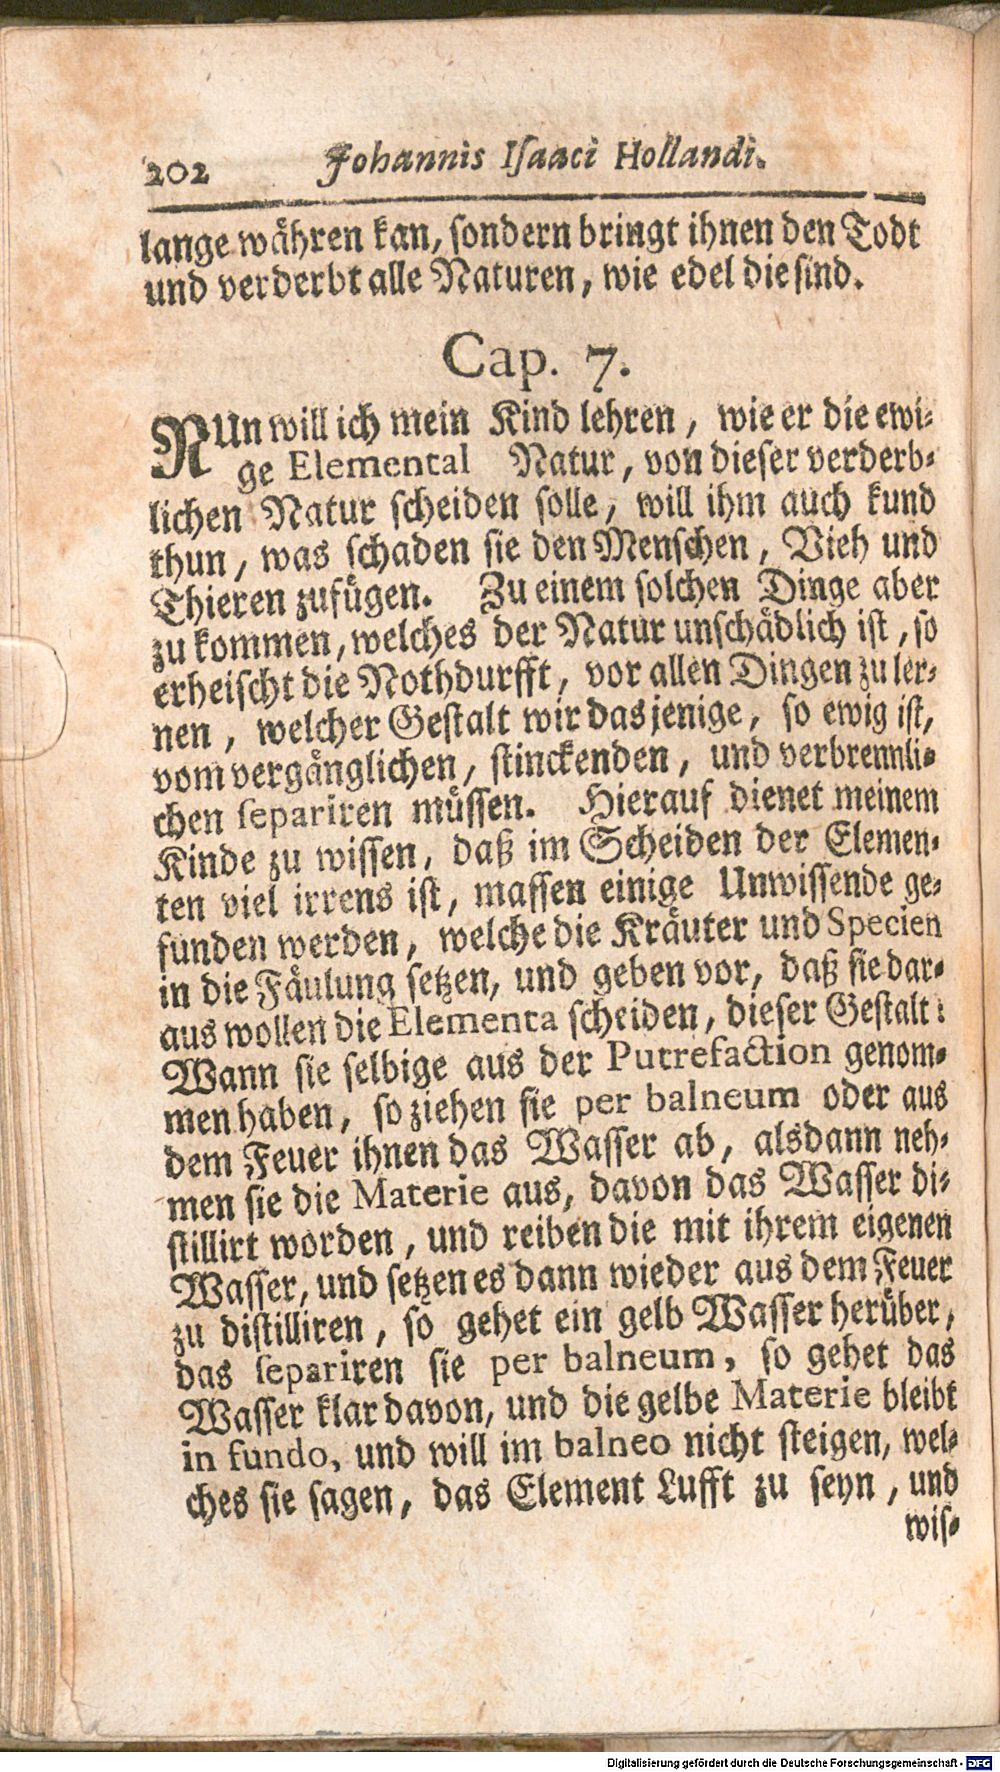 202 Johannis Isaaci Hollandi.
lange währen kan, sondern bringt ihnen den Todt
und verderbt alle Naturen, wie edel die sind.
Cap. 7.
NUn will ich mein Kind lehren, wie er die ewi-
ge Elemental Natur, von dieser verderb-
lichen Natur scheiden solle, will ihm auch kund
thun, was schaden sie den Menschen, Vieh und
Thieren zufügen. Zu einem solchen Dinge aber
zu kommen, welches der Natur unschädlich ist, so
erheischt die Nothdurfft, vor allen Dingen zu ler-
nen, welcher Gestalt wir dasjenige, so ewig ist,
vom vergänglichen, stinckenden, und verbrennli-
chen separiren müssen. Hierauf dienet meinem
Kinde zu wissen, daß im Scheiden der Elemen-
ten viel irrens ist, massen einige Unwissende ge-
funden werden, welche die Kräuter und Specien
in die Fäulung setzen, und geben vor, daß sie dar-
aus wollen die Elementa scheiden, dieser Gestalt:
Wann sie selbige aus der Putrefaction genom-
men haben, so ziehen sie per balneum oder aus
dem Feuer ihnen das Wasser ab, alsdann neh-
men sie die Materie aus, davon das Wasser di-
stillirt worden, und reiben die mit ihrem eigenen
Wasser, und setzen es dann wieder aus dem Feuer
zu distilliren, so gehet ein gelb Wasser herüber,
das separiren sie per balneum, so gehet das
Wasser klar davon, und die gelbe Materie bleibt
in fundo, und will im balneo nicht steigen, wel-
ches sie sagen, das Element Lufft zu seyn, und
wis-
Digitalisierung gefördert durch die Deutsche Forschungsgemeinschaft - DFG